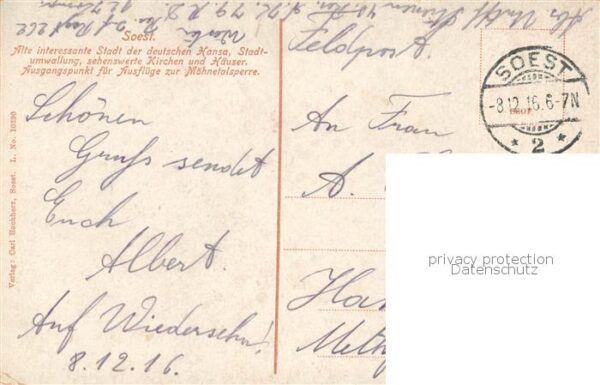 Soest.
Alte interessante Stadt der deutschen Hansa, Stadt-
umwallung, sehenswerte Kirchen und Häuser.
Ausgangspunkt für Ausflüge zur Möhnetalsperre.
Schönen
Gruß sendet
Euch
Albert.
Auf Wiedersehn!
8.12.16.
Verlag: Carl Hochherz, Soest. L. No.
Feldpost.
SOEST
-8.12.16.6-7N
* 2 *
An Frau
A.
Ha
privacy protection
Datenschutz